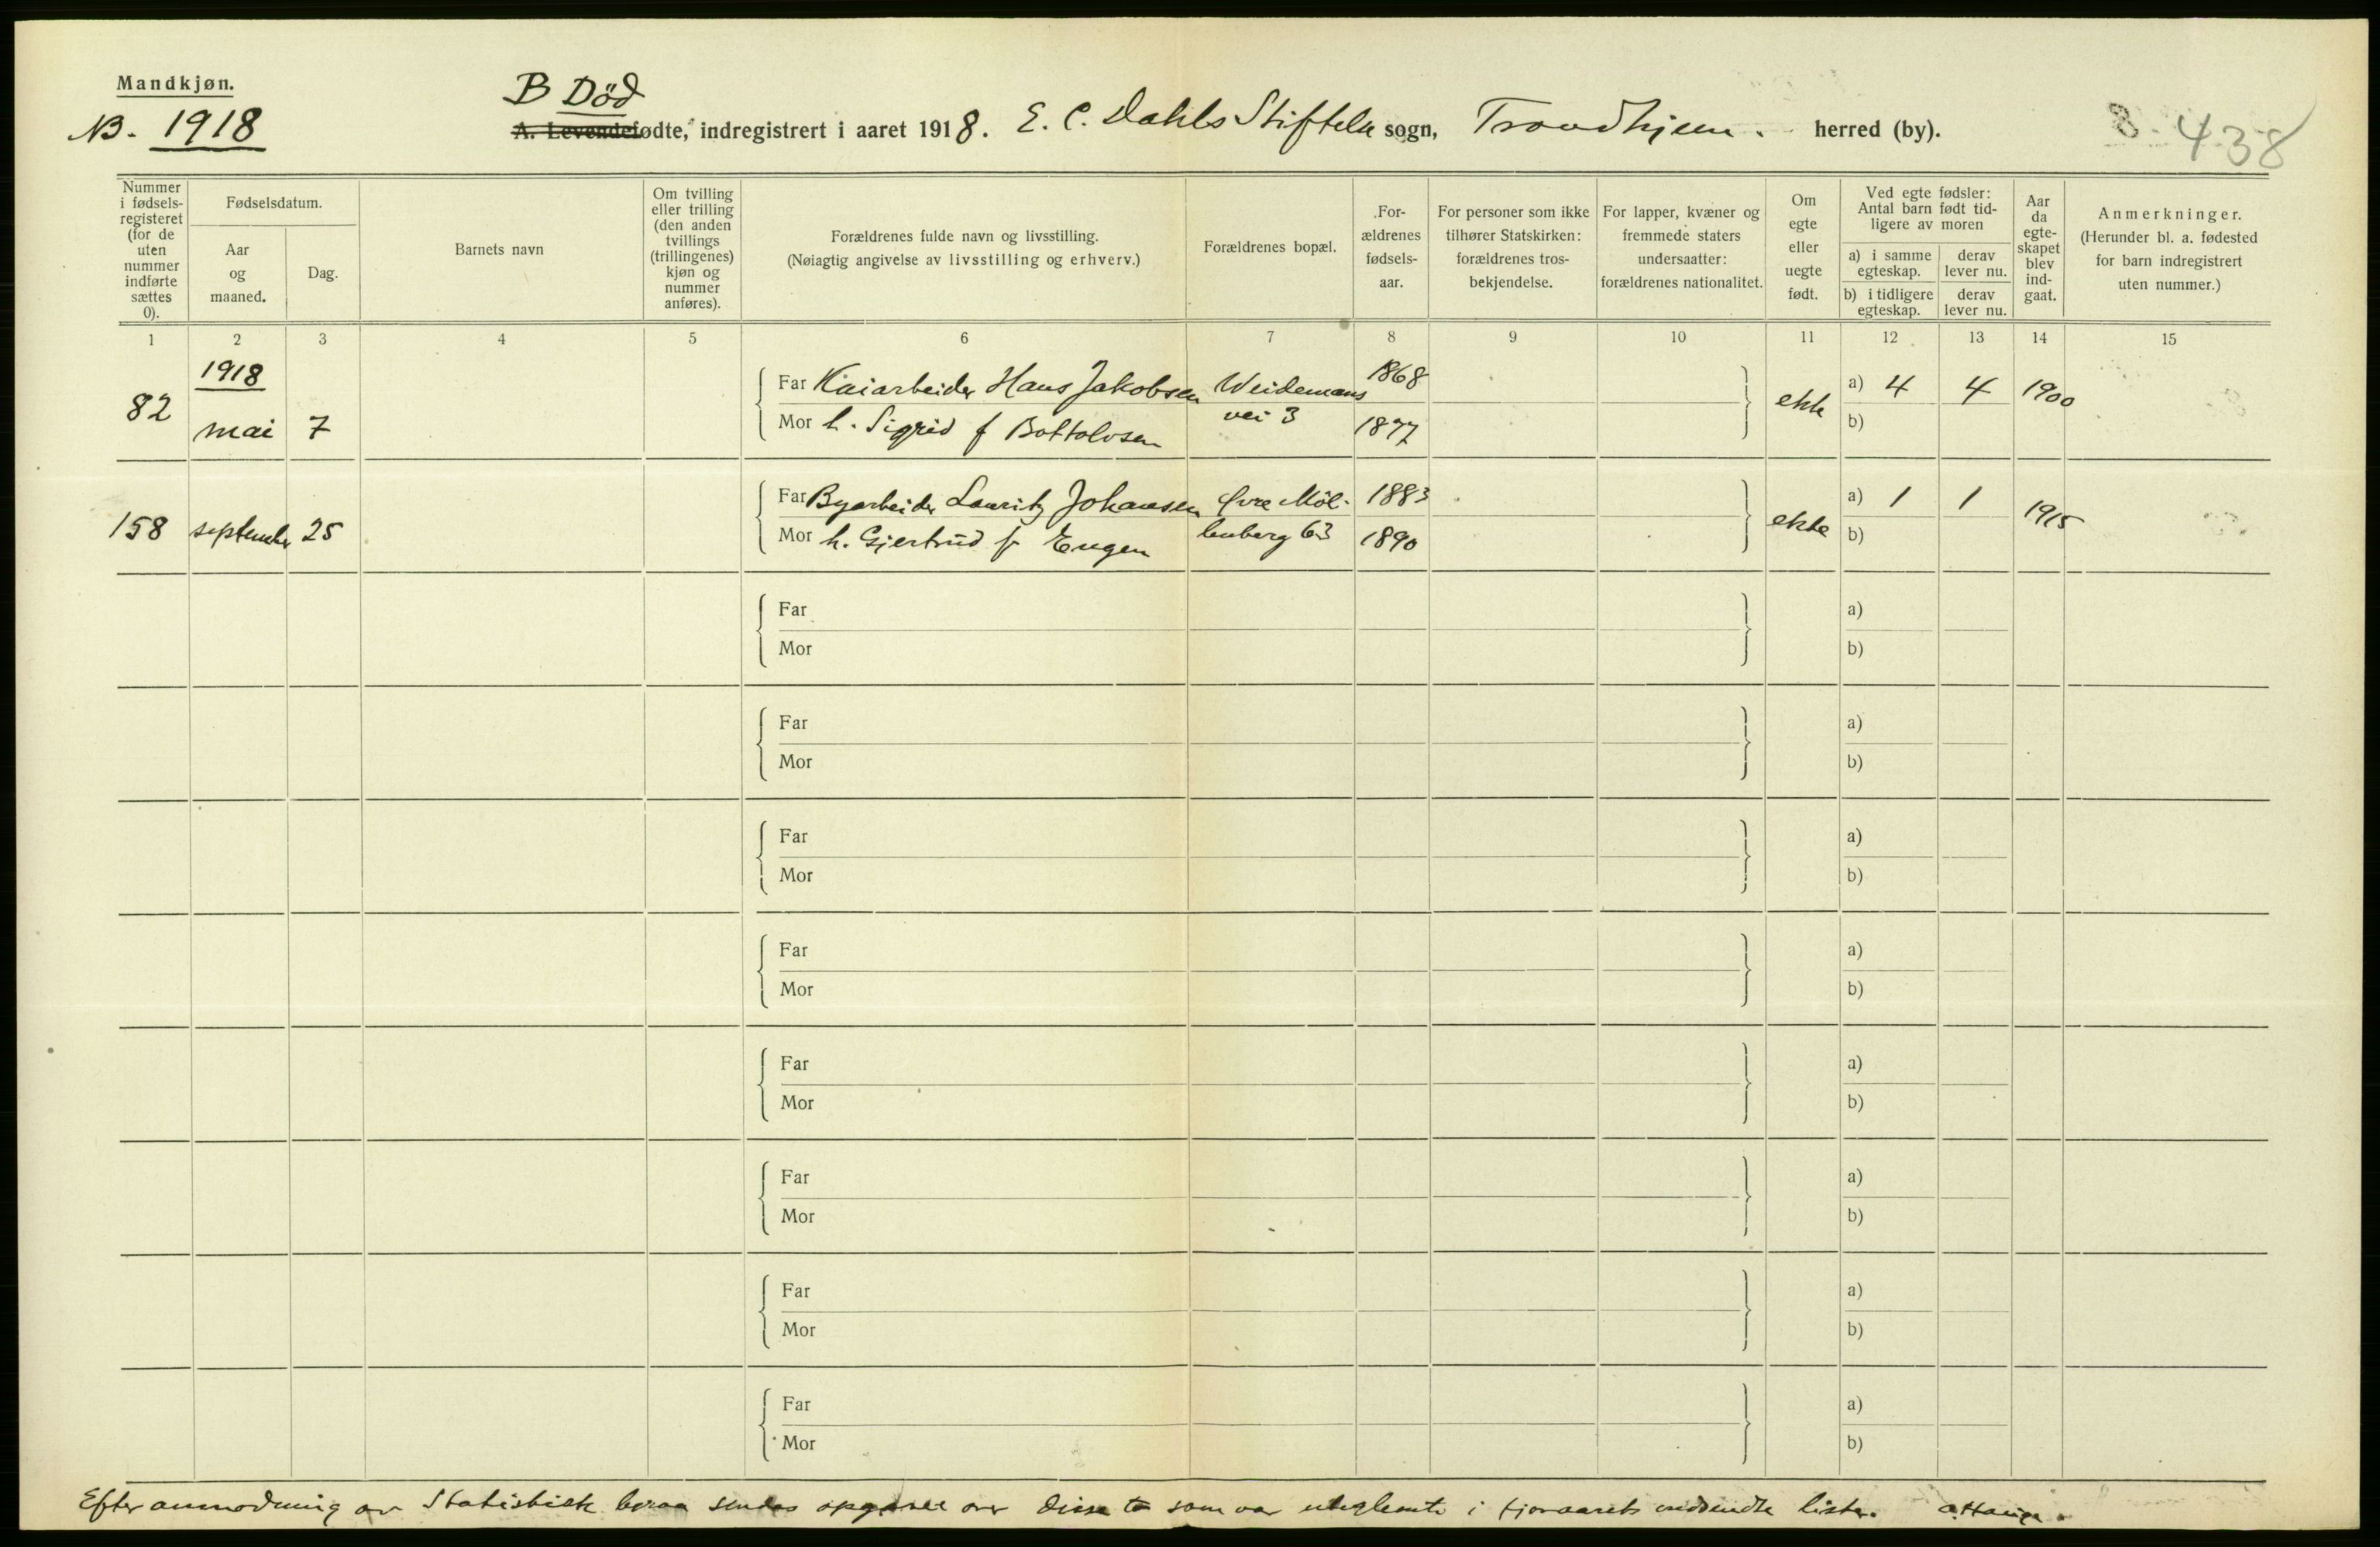 Mandkjøn.
NB. 1918
B Död
A. Levendefødte, indregistrert i aaret 1918. E. C. Dahls Stiftelse sogn, Trondhjem. herred (by).
438
Nummer i fødselsregisteret (for de uten nummer indførte sættes 0).
Fødselsdatum.
Aar og maaned.
Dag.
Barnets navn
Om tvilling eller trilling (den anden tvillings (trillingenes) kjøn og nummer anføres).
Forældrenes fulde navn og livsstilling.
(Nøiagtig angivelse av livsstilling og erhverv.)
Forældrenes bopæl.
Forældrenes fødselsaar.
For personer som ikke tilhører Statskirken: forældrenes trosbekjendelse.
For lapper, kvæner og fremmede staters undersaatter: forældrenes nationalitet.
Om egte eller uegte født.
Ved egte fødsler: Antal barn født tidligere av moren
a) i samme egteskap. derav lever nu.
b) i tidligere egteskap. derav lever nu.
Aar da egteskapet blev indgaat.
Anmerkninger.
(Herunder bl. a. fødested for barn indregistrert uten nummer.)
1 2 3 4 5 6 7 8 9 10 11 12 13 14 15
1918
82 mai 7 Far Kaiarbeider Hans Jakobsen Weidemans 1868 ekte a) 4 4 1900
Mor h. Sigrid f Bottolvsen vei 3 1877 b)
158 september 25 Far Byarbeider Lauritz Johansen Øvre Möl- 1883 ekte a) 1 1 1915
Mor h. Gjertrud f Eugen lenberg 63 1890 b)
Far a)
Mor b)
Far a)
Mor b)
Far a)
Mor b)
Far a)
Mor b)
Far a)
Mor b)
Far a)
Mor b)
Far a)
Mor b)
Far a)
Mor b)
Efter anmodning av Statistisk byraa sendes opgave over disse to som var uteglemte i fjoraarets indsendte lister.